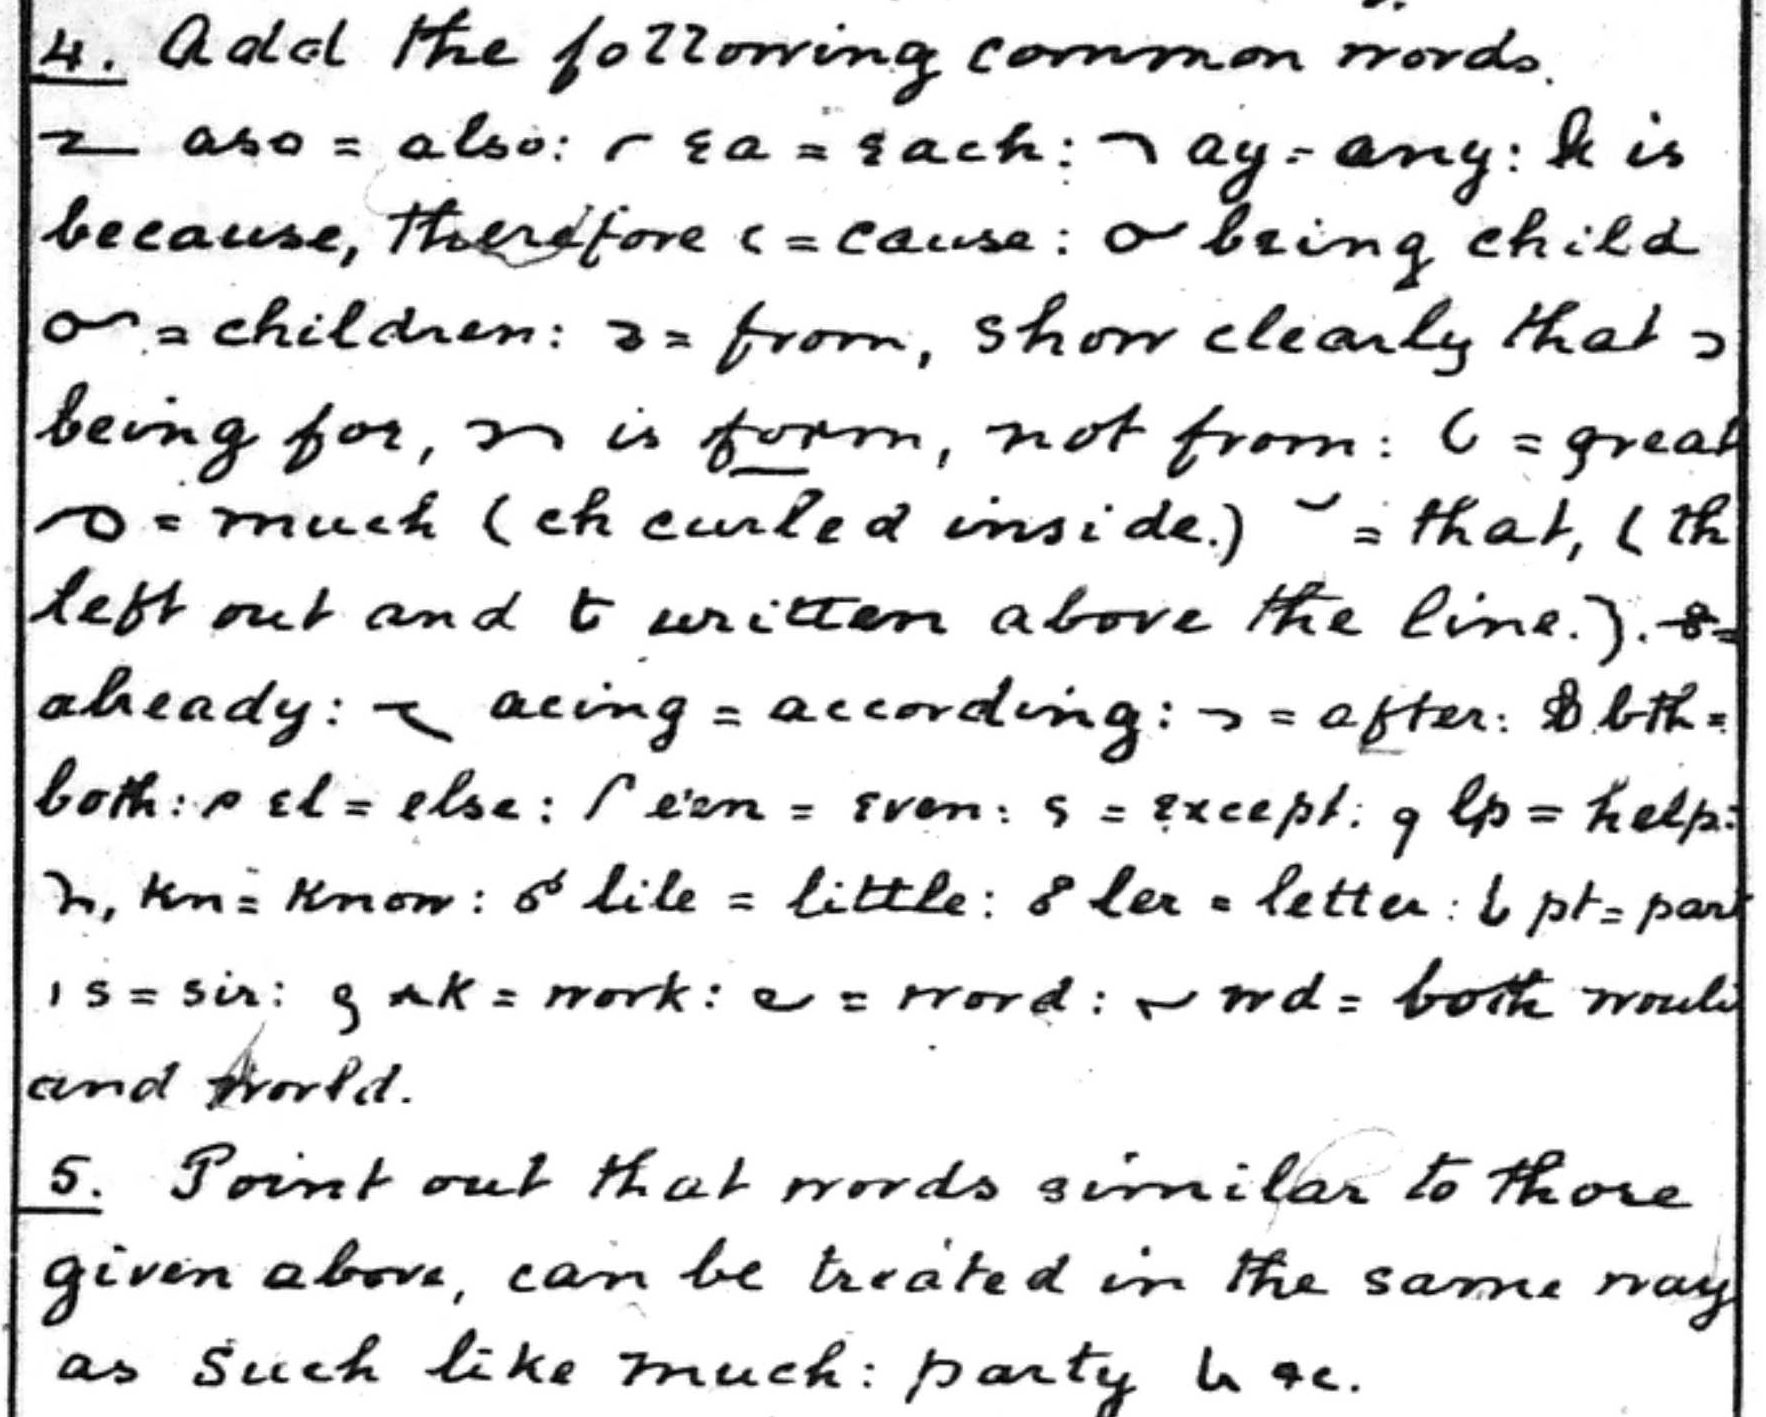 4. Add the following common words.
aso = also: ea = each: ay = any: k is
because, therefore c = cause: being child
= children: = from, show clearly that
being for, is form, not from: = great
= much (ch curled inside.) = that, (th
left out and t written above the line.). =
already: acing = according: = after: bth =
both: el = else: e'en = even: = except: lp = help:
kn = know: litle = little: ler = letter: pt = part
s = sir: wk = work: = word: wd = both would
and world.
5. Point out that words similar to those
given above, can be treated in the same way
as such like much: party &c.